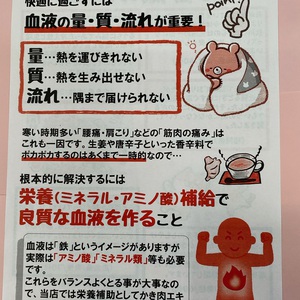 快適に過ごすには
point!
血液の量・質・流れが重要！
量…熱を運びきれない
質…熱を生み出せない
流れ…隅まで届けられない
寒い時期多い「腰痛・肩こり」などの「筋肉の痛み」は
これも一因です。生姜や唐辛子といった香辛料で
ポカポカするのはあくまで一時的なので…
根本的に解決するには
栄養(ミネラル・アミノ酸)補給で
良質な血液を作ること
血液は「鉄」というイメージがありますが
実際は「アミノ酸」「ミネラル類」等も必要
です。
これらをバランスよくとる事が大事なの
で、当店では栄養補助としてかき肉エキ